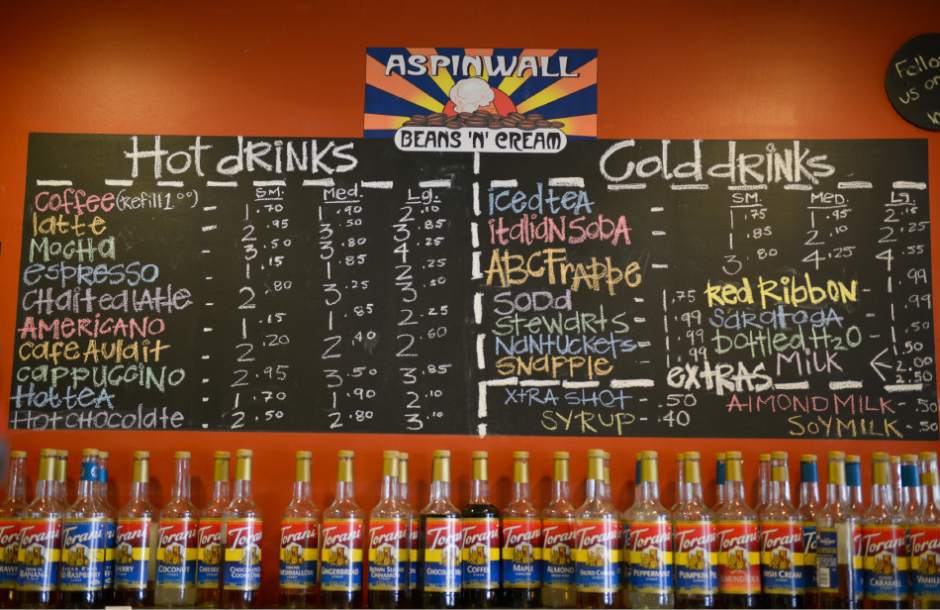 ASPINWALL
BEANS 'N' CREAM
Follow
us on
Hot drinks
SM. Med. Lg.
Coffee (Refill 1.00) - 1.70 1.90 2.10
Latte - 2.95 3.50 3.85
Mocha - 3.50 3.80 4.25
espresso - 1.15 1.85 2.25
Chai tea latte - 2.80 3.25 3.50
AMERICANO - 1.15 1.85 2.25
Cafe Au lait - 2.20 2.40 2.60
CAPPUCCINO - 2.95 3.50 3.85
Hot tea - 1.70 1.90 2.10
Hot chocolate - 2.50 2.80 3.10
Cold drinks
SM. MED. Lg.
iced teA - 1.75 1.95 2.15
italian Soda - 1.85 2.10 2.25
ABC Frappe - 3.80 4.25 4.55
SODA - 1.75
Stewarts - 1.99
Nantuckets - 1.99
SNAPPLE - 1.99
Red Ribbon - 1.99
Saratoga - 1.99
bottled H2O - 1.50
Milk < 2.00
2.50
extras
XTRA SHOT - .50
SYRUP - .40
Almond Milk - .50
Soy Milk - .50
Torani
BANANA
Torani
RASPBERRY
Torani
Torani
COCONUT
Torani
Torani
Torani
Torani
GINGERBREAD
Torani
BROWN SUGAR
CINNAMON
Torani
CHOCOLATE
Torani
COFFEE
Torani
MAPLE
Torani
ALMOND
Torani
SALTED CARAMEL
Torani
PEPPERMINT
Torani
PUMPKIN
Torani
Torani
IRISH CREAM
Torani
Torani
CARAMEL
Torani
VANILLA